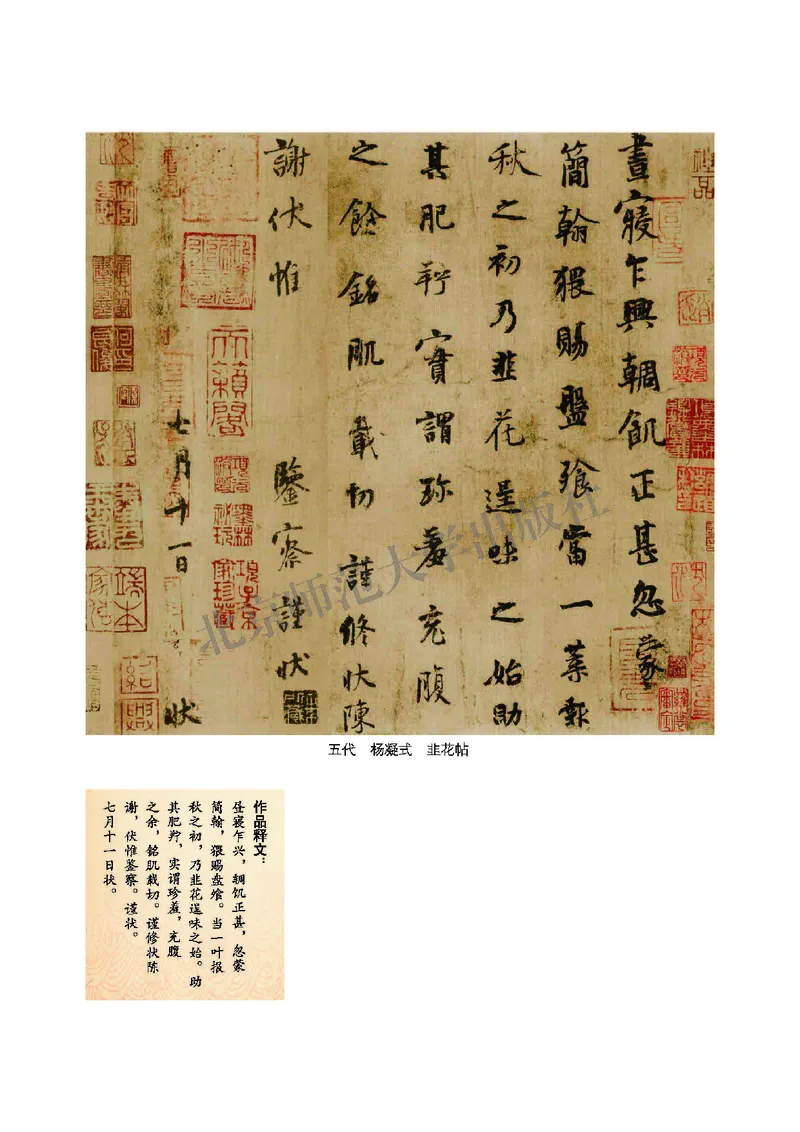 晝寢乍興輖飢正甚忽蒙
簡翰猥賜盤飱當一葉報
秋之初乃韭花逞味之始助
其肥羜實謂珍羞充腹
之餘銘肌載切謹修狀陳
謝伏惟鑒察謹狀
七月十一日狀
北京师范大学出版社
五代 杨凝式 韭花帖
作品释文：
昼寝乍兴，輖饥正甚，忽蒙
简翰，猥赐盘飧。当一叶报
秋之初，乃韭花逞味之始。助
其肥羜，实谓珍羞，充腹
之余，铭肌载切。谨修状陈
谢，伏惟鉴察。谨状。
七月十一日状。